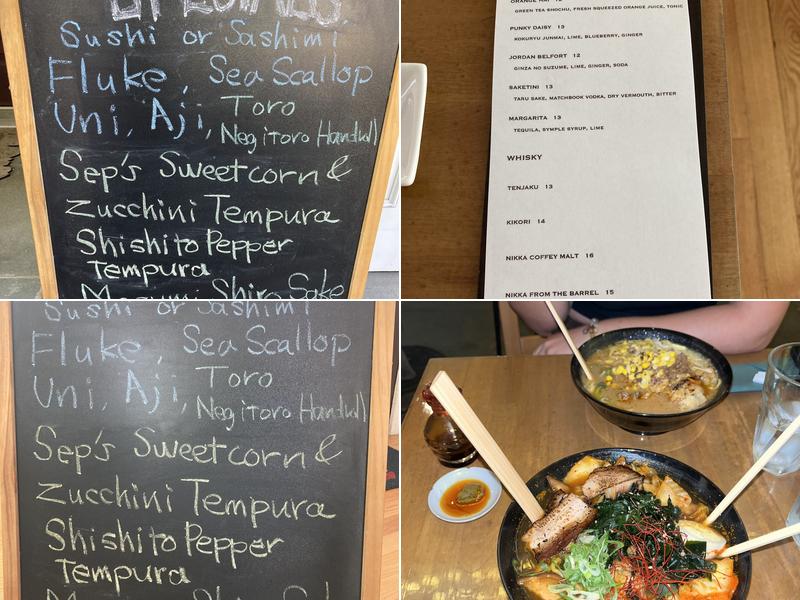 SPECIALS
Sushi or Sashimi
Fluke, Sea Scallop
Uni, Aji, Toro
Negitoro Handroll
Sep's Sweetcorn &
Zucchini Tempura
Shishito Pepper
Tempura
Masumi Shiro Sake
GREEN TEA SHOCHU, FRESH SQUEEZED ORANGE JUICE, TONIC
PUNKY DAISY 13
KOKURYU JUNMAI, LIME, BLUEBERRY, GINGER
JORDAN BELFORT 12
GINZA NO SUZUME, LIME, GINGER, SODA
SAKETINI 13
TARU SAKE, MATCHBOOK VODKA, DRY VERMOUTH, BITTER
MARGARITA 13
TEQUILA, SYMPLE SYRUP, LIME
WHISKY
TENJAKU 13
KIKORI 14
NIKKA COFFEY MALT 16
NIKKA FROM THE BARREL 15
Sushi or Sashimi
Fluke, Sea Scallop
Uni, Aji, Toro
Negitoro Handroll
Sep's Sweetcorn &
Zucchini Tempura
Shishito Pepper
Tempura